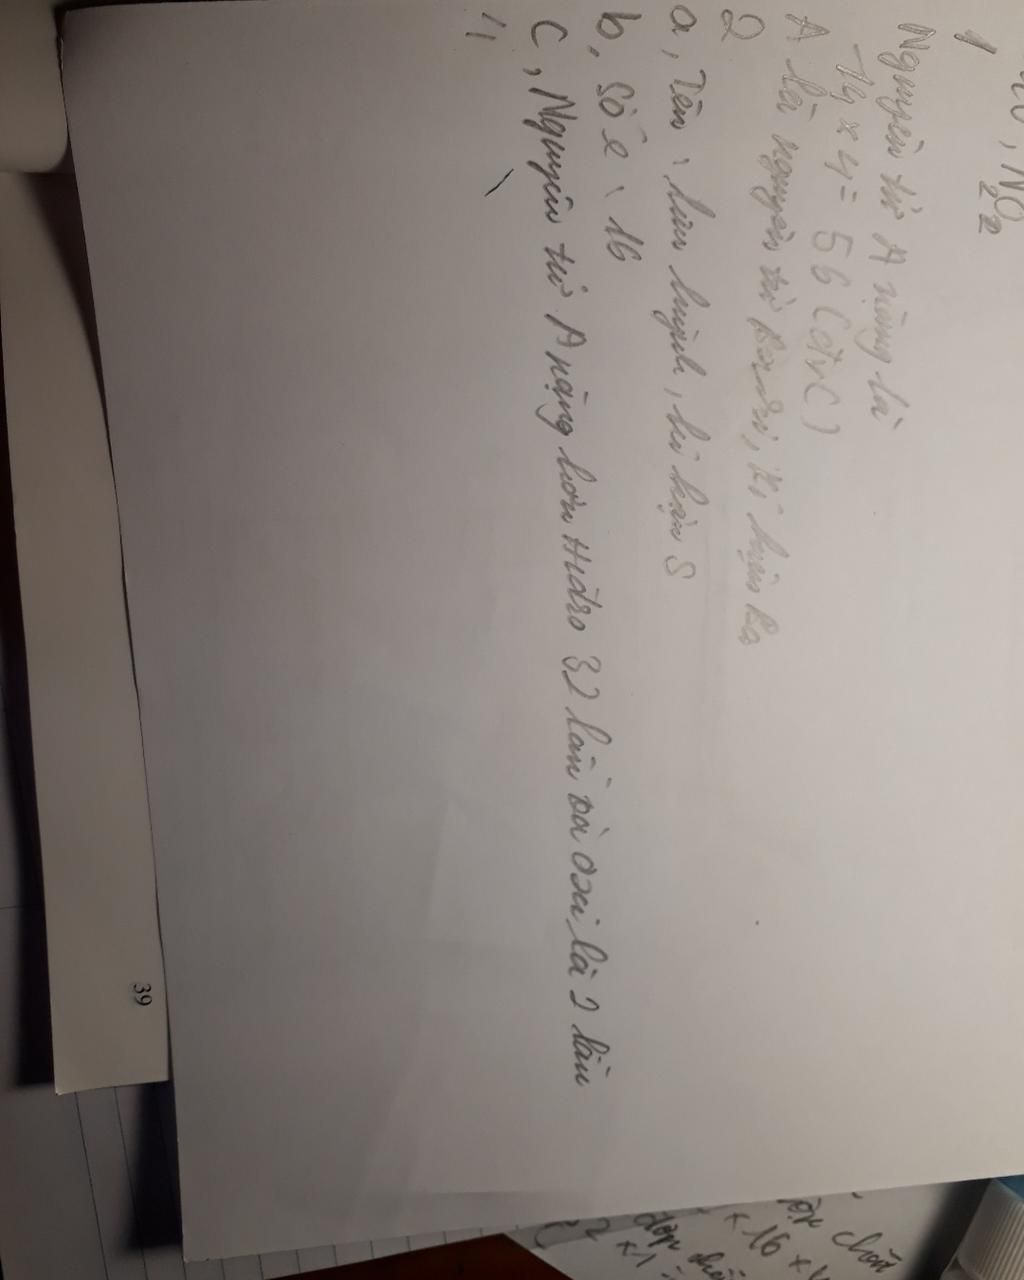 , NO₂
1
Nguyên tử A nặng là
14 x 4 = 56 (đvC)
A là nguyên tử , kí hiệu Ba
2
a, Tên : lưu huỳnh, kí hiệu S
b, số e : 16
c, Nguyên tử A nặng hơn Hiđro 32 lần và oxi là 2 lần
39
chất
x 16 x
x 1